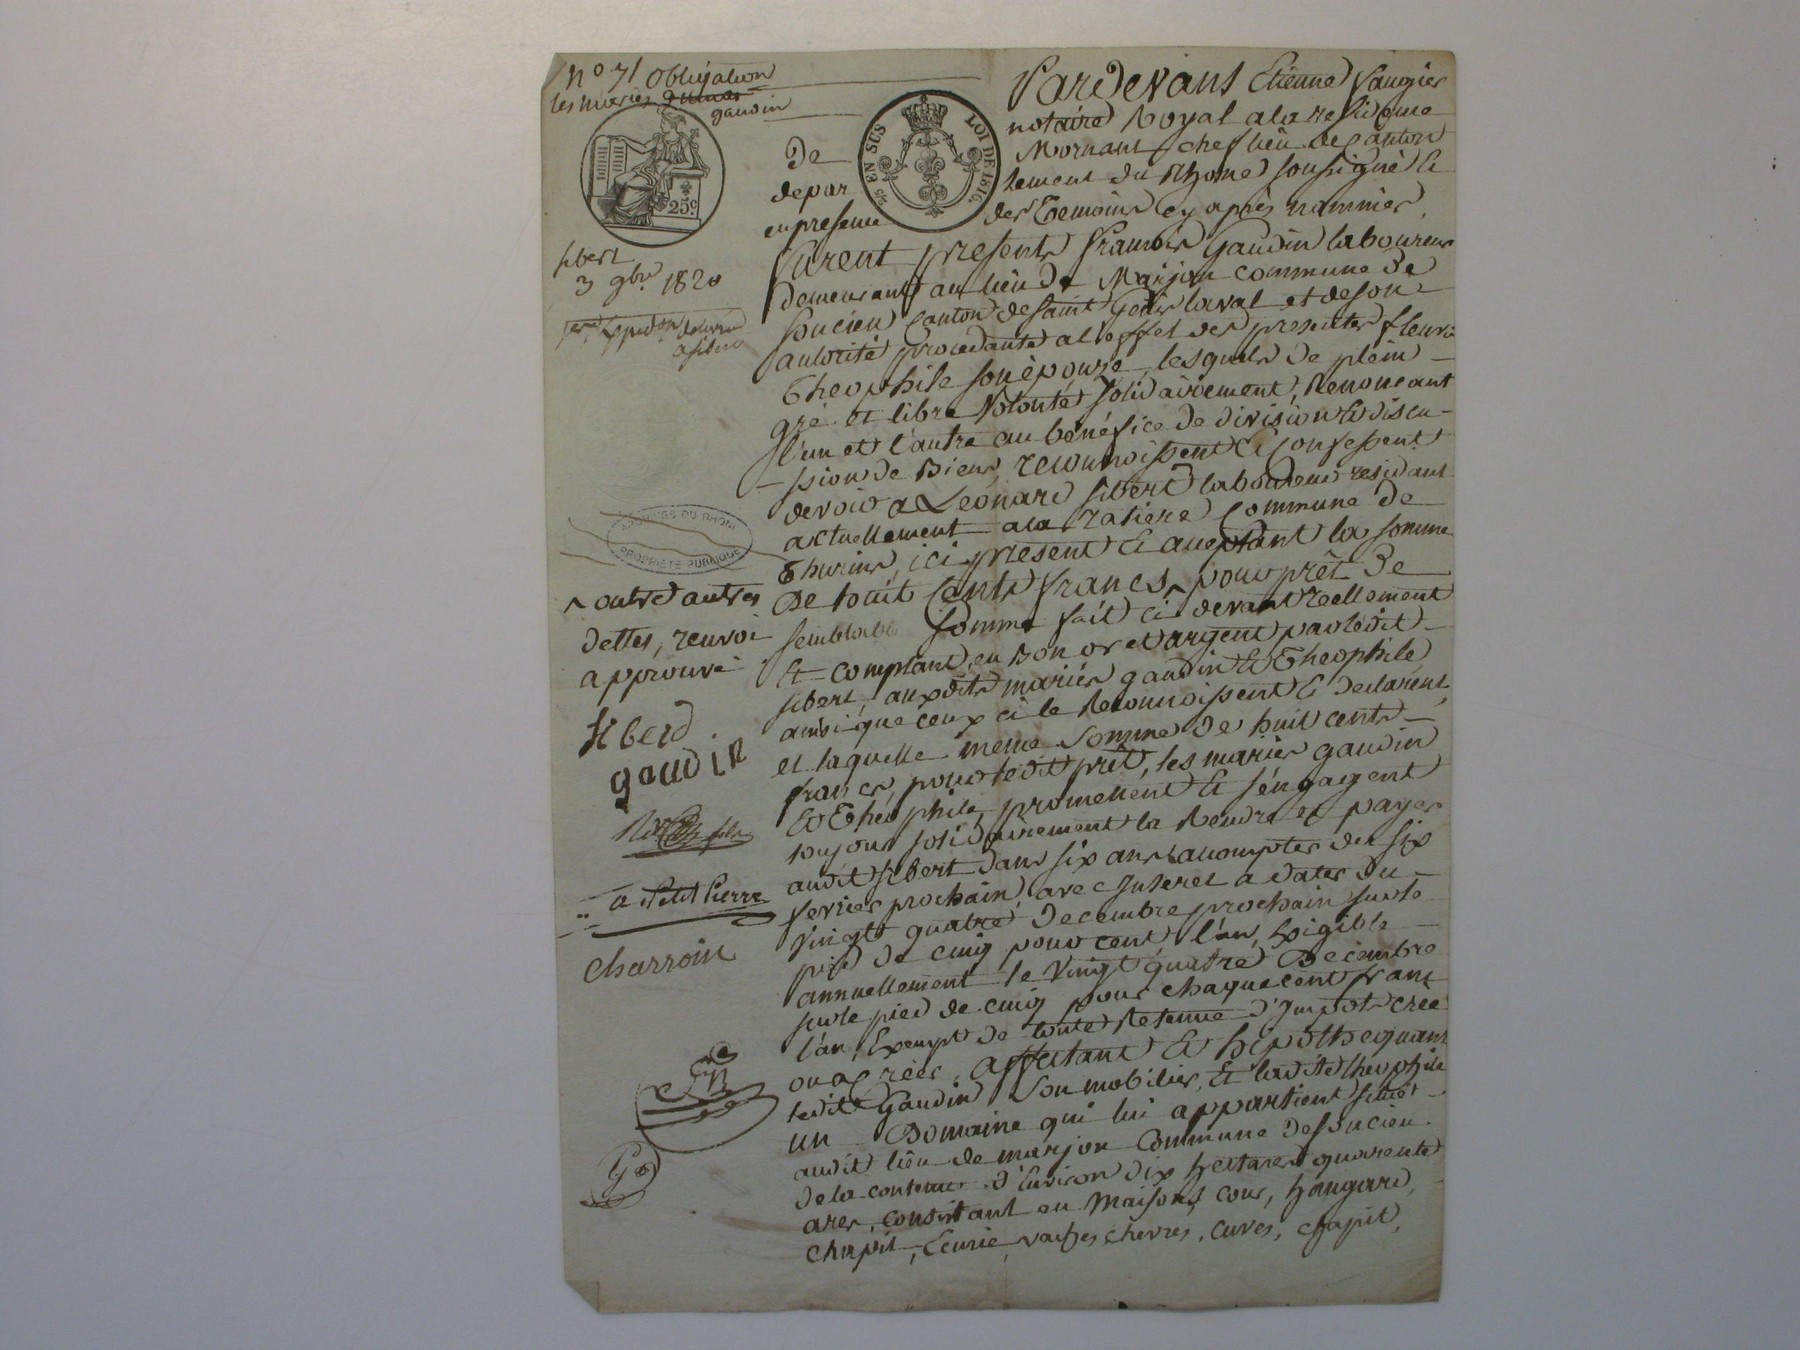 N° 71 Obligation
les mariés
gaudin
25c
EN SUS LOI DE 1816.
Sibert
3 9bre 1820
Pardevant Etienne Saugier
notaire Royal a la residence
De Mornant chef lieu de Canton
depar tement du Rhone soussigné Et
en presence des Temoins cy après nommiés,
furent presents francois Gaudin laboureur
demeurant au lieu de Marjon commune De
Soucieu Canton de Saint Genis laval et de son
autorité procedante a l'effet des presentes fleurie
Theophile son épouse, lesquels de plein
gré et libre volonté solidairement, Renoncant
l'un et l'autre au bénéfice de division Et discu-
ssion de Biens, reconnoissent Et Confessent
devoir a Léonard Sibert laboureur residant
actuellement a la ratiere Commune de
Thurins, ici present Et acceptant la somme
De huit Cents francs, pour prêt De
semblable somme fait ci devant réellement
Et comptant en Bon or et argent par ledit
Sibert, auxdits mariés gaudin Et Theophile,
ainsi que ceux ci le Reconnoissent Et declarent,
et laquelle meme Somme de huit cents
francs, pour ledit prêt, les mariés gaudin
Et Théophile, promettent Et s'éngagent
toujours solidairement la Rendre et payer
audit Sibert dans six ans a compter du six
fevrier prochain, avec Interet a dater du
vingt quatre Decembre prochain sur le
pied de cinq pour cent l'an, Exigible
annuellement le vingt quatre Decembre
sur le pied de cinq pour chaque cent franc
l'an, Exempt de toute Retenue d'Impots créé
ou a créer, affectant Et hipothequant
ledit Gaudin son mobilier, Et ladite theophile
un Domaine qui lui appartient situé
audit lieu de marjon Commune de Soucieu
de la contenue d'Environ dix hectares quarente
ares, consistant en Maisons, cour, hangard,
chapit, Ecurie, vaches chevres, cuves, chapit,
ARCHIVES DU RHÔNE
PROPRIÉTÉ PUBLIQUE
outre autres
dettes, renvoi
approuvé
Siberd
gaudin
a Petit Pierre
Charroin